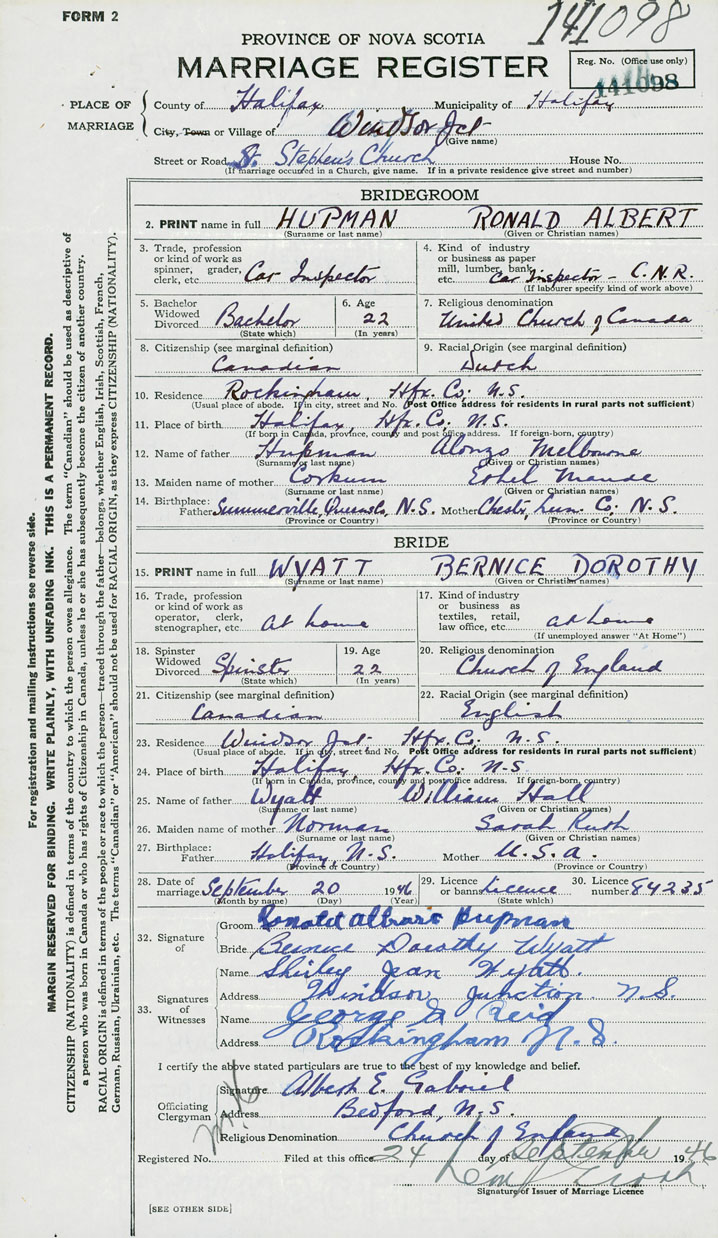 FORM 2
141098
PROVINCE OF NOVA SCOTIA
MARRIAGE REGISTER
Reg. No. (Office use only)
141098
PLACE OF MARRIAGE
County of Halifax Municipality of Halifax
City, Town or Village of Windsor Jct
(Give name)
Street or Road St. Stephen's Church House No.
(If marriage occurred in a Church, give name. If in a private residence give street and number)
BRIDEGROOM
2. PRINT name in full HUPMAN RONALD ALBERT
(Surname or last name) (Given or Christian names)
3. Trade, profession or kind of work as spinner, grader, clerk, etc. Car Inspector
4. Kind of industry or business as paper mill, lumber, bank, etc. Car Inspector - C.N.R.
(If labourer specify kind of work above)
5. Bachelor Widowed Divorced Bachelor
(State which)
6. Age 22
(In years)
7. Religious denomination
United Church of Canada
8. Citizenship (see marginal definition)
Canadian
9. Racial Origin (see marginal definition)
Dutch
10. Residence Rockingham, Hfx. Co. N.S.
(Usual place of abode. If in city, street and No. Post Office address for residents in rural parts not sufficient)
11. Place of birth Halifax, Hfx. Co. N.S.
(If born in Canada, province, county and post office address. If foreign-born, country)
12. Name of father Hupman Alonzo Melbourne
(Surname or last name) (Given or Christian names)
13. Maiden name of mother Corkum Ethel Maude
(Surname or last name) (Given or Christian names)
14. Birthplace: Father Summerville, Queens Co, N.S. Mother Chester, Lun. Co. N.S.
(Province or Country) (Province or Country)
BRIDE
15. PRINT name in full WYATT BERNICE DOROTHY
(Surname or last name) (Given or Christian names)
16. Trade, profession or kind of work as operator, clerk, stenographer, etc. at home
17. Kind of industry or business as textiles, retail, law office, etc. at home
(If unemployed answer "At Home")
18. Spinster Widowed Divorced Spinster
(State which)
19. Age 22
(In years)
20. Religious denomination
Church of England
21. Citizenship (see marginal definition)
Canadian
22. Racial Origin (see marginal definition)
English
23. Residence Windsor Jct. Hfx. Co. N.S.
(Usual place of abode. If in city, street and No. Post Office address for residents in rural parts not sufficient)
24. Place of birth Halifax, Hfx. Co. N.S.
(If born in Canada, province, county and post office address. If foreign-born, country)
25. Name of father Wyatt William Hall
(Surname or last name) (Given or Christian names)
26. Maiden name of mother Norman Sarah Ruth
(Surname or last name) (Given or Christian names)
27. Birthplace: Father Halifax, N.S. Mother U.S.A.
(Province or Country) (Province or Country)
28. Date of marriage September 20 1946
(Month by name) (Day) (Year)
29. Licence or banns Licence
(State which)
30. Licence number 84235
32. Signature of
Groom Ronald Albert Hupman
Bride Bernice Dorothy Wyatt
33. Signatures of Witnesses
Name Shirley Jean Wyatt.
Address Windsor Junction. N.S.
Name George Reid
Address Rockingham N.S.
I certify the above stated particulars are true to the best of my knowledge and belief.
Officiating Clergyman
Signature Albert E. Gabriel
Address Bedford, N.S.
Religious Denomination Church of England
Registered No. Filed at this office 24 day of September 1946
Signature of Issuer of Marriage Licence
[SEE OTHER SIDE]
For registration and mailing instructions see reverse side.
MARGIN RESERVED FOR BINDING. WRITE PLAINLY, WITH UNFADING INK. THIS IS A PERMANENT RECORD.
CITIZENSHIP (NATIONALITY) is defined in terms of the country to which the person owes allegiance. The term "Canadian" should be used as descriptive of
a person who was born in Canada or who has rights of Citizenship in Canada, unless he or she has subsequently become the citizen of another country.
RACIAL ORIGIN is defined in terms of the people or race to which the person—traced through the father—belongs, whether English, Irish, Scottish, French,
German, Russian, Ukrainian, etc. The terms "Canadian" or "American" should not be used for RACIAL ORIGIN, as they express CITIZENSHIP (NATIONALITY).